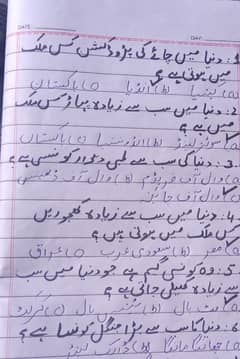 DATE DAY
1: دنیا میں چائے کی پڑوڈکیشن کس ملک
میں ہوتی ہے؟
انڈیا (b) (c) پاکستان
2: دنیا میں سب سے زیادہ پہاڑ کس ملک
میں ہے؟
سوئزلینڈ (b) انڈونیشیا (c) پاکستان
3: دنیا کی سب سے لمبی دیوار کونسی ہے؟
وال آف (b) وال آف
وال آف چائنہ
4: دنیا میں سب سے زیادہ کھجوریں
کس ملک میں ہوتی ہیں؟
مصر (b) سعودی عرب (c) عراق
5: وہ کونسی گیم ہے جو دنیا میں سب
سے زیادہ کھیلی جاتی ہے؟
فٹ بال (b) بال (c) کرکٹ
6: دنیا کا سب سے بڑا جنگل کونسا ہے؟
(b)